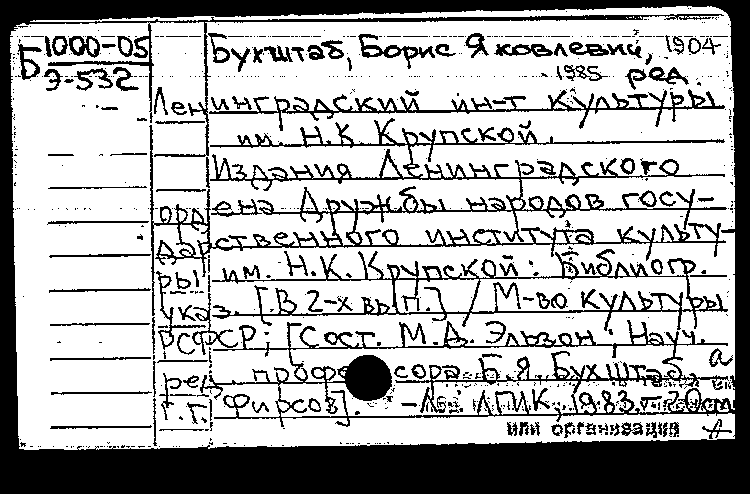 Б 1000-05
Э-532
Бухштаб, Борис Яковлевич, 1904
1985 ред.
Ленинградский ин-т культуры
им. Н.К. Крупской.
Издания Ленинградского
ордена Дружбы народов госу-
дарственного института культу-
ры им. Н.К. Крупской: Библиогр.
указ. [В 2-х вып.] / М-во культуры
РСФСР; [Сост. М.Д. Эльзон; Науч.
ред. профессора Б.Я. Бухштаб, а
Г.Г. Фирсов]. - Л.: ЛГИК, 1983.
или организация